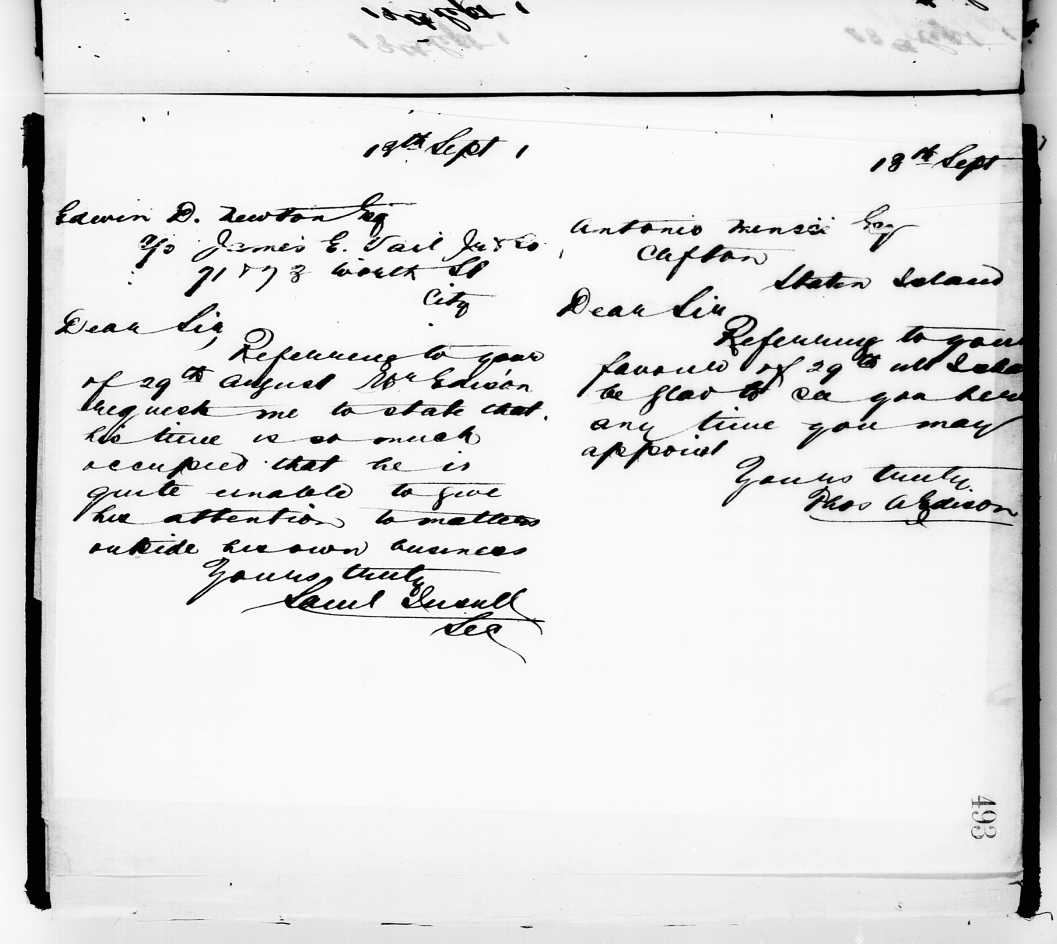 13th Sept 1
Edwin D. Newton Esq
c/o James E. Vail Jr & Co
71 & 73 Worth St
City
Dear Sir,
Referring to your
of 29th August Mr Edison
requests me to state that
his time is so much
occupied that he is
quite unable to give
his attention to matters
outside his own business
Yours truly
Saml Insull
Sec
13th Sept
Antonio Meucci Esq
Clifton
Staten Island
Dear Sir
Referring to your
favour of 29th ult I shall
be glad to see you here
any time you may
appoint
Yours truly
Thos A Edison
493